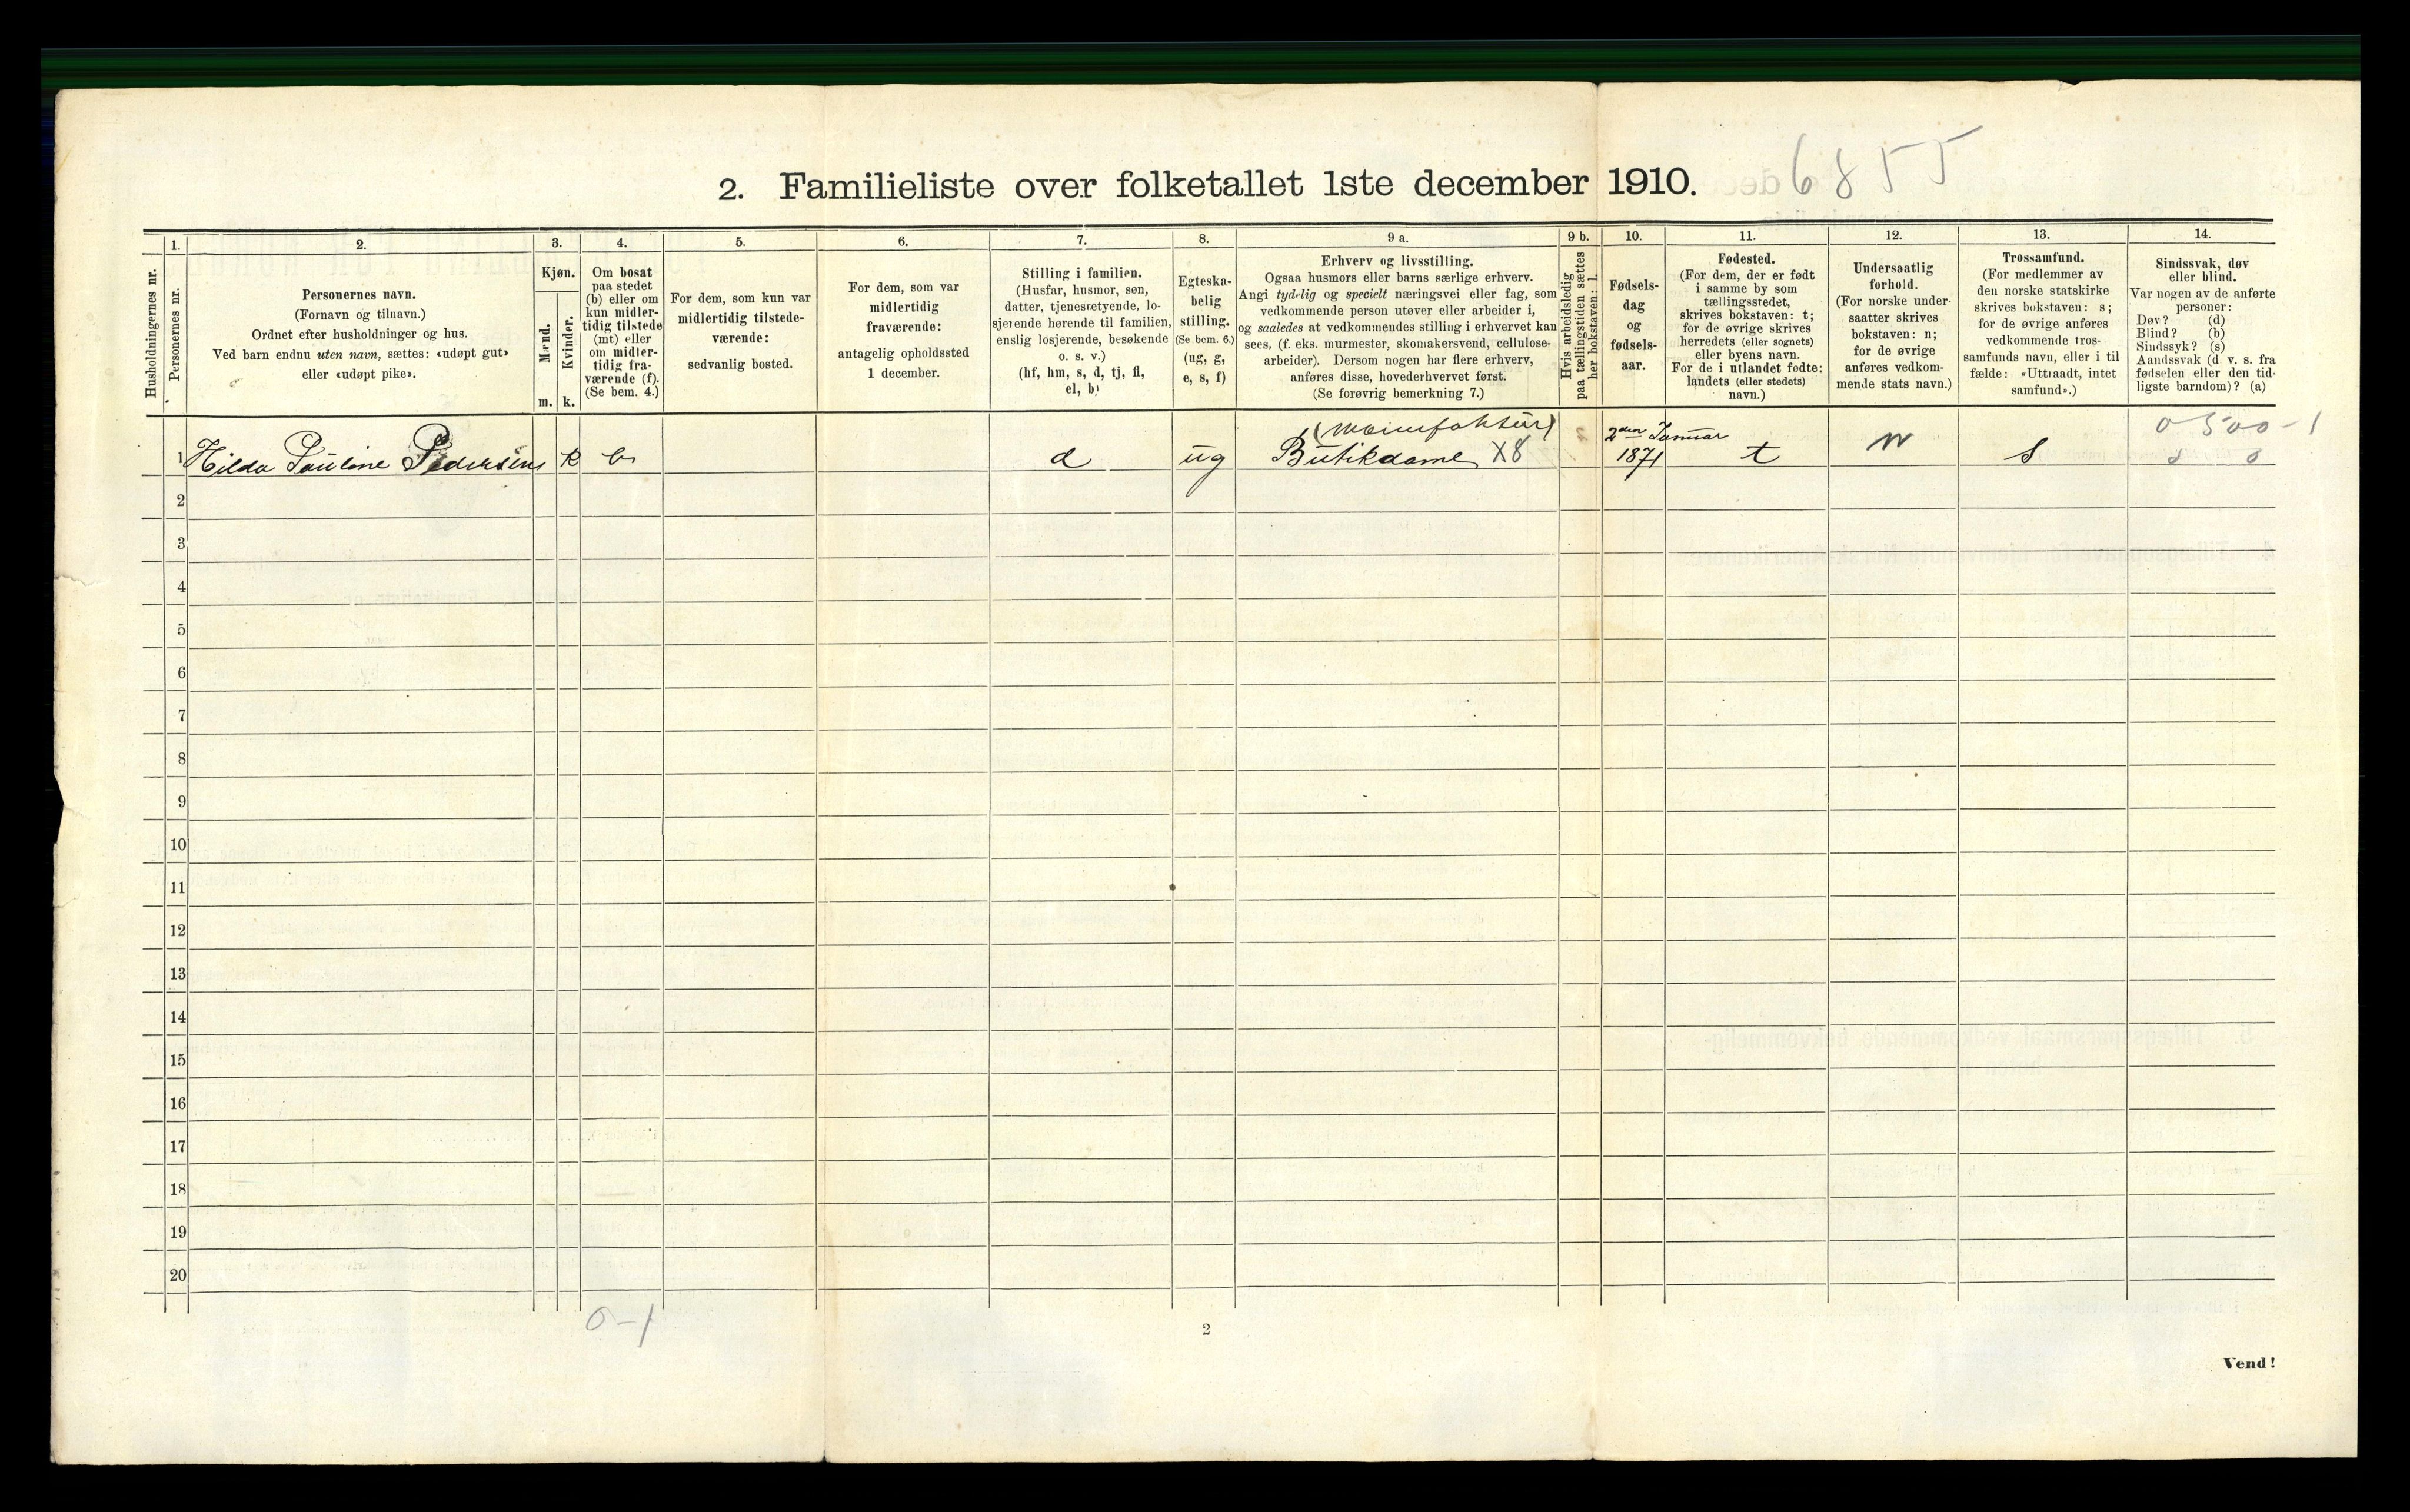 2. Familieliste over folketallet 1ste december 1910.
6855
Husholdningernes nr.
1.
Personernes nr.
2.
Personernes navn.
(Fornavn og tilnavn.)
Ordnet efter husholdninger og hus.
Ved barn endnu uten navn, sættes: «udøpt gut»
eller «udøpt pike».
3.
Kjøn.
Mænd.
m.
Kvinder.
k.
4.
Om bosat
paa stedet
(b) eller om
kun midler-
tidig tilstede
(mt) eller
om midler-
tidig fra-
værende (f).
(Se bem. 4.)
5.
For dem, som kun var
midlertidig tilstede-
værende:
sedvanlig bosted.
6.
For dem, som var
midlertidig
fraværende:
antagelig opholdssted
1 december.
7.
Stilling i familien.
(Husfar, husmor, søn,
datter, tjenestetyende, lo-
sjerende hørende til familien,
enslig losjerende, besøkende
o. s. v.)
(hf, hm, s, d, tj, fl,
el, b)
8.
Egteska-
belig
stilling.
(Se bem. 6.)
(ug, g,
e, s, f)
9 a.
Erhverv og livsstilling.
Ogsaa husmors eller barns særlige erhverv.
Angi tydelig og specielt næringsvei eller fag, som
vedkommende person utøver eller arbeider i,
og saaledes at vedkommendes stilling i erhvervet kan
sees, (f. eks. murmester, skomakersvend, cellulose-
arbeider). Dersom nogen har flere erhverv,
anføres disse, hovederhvervet først.
(Se forøvrig bemerkning 7.)
9 b.
Hvis arbeidsledig
paa tællingstiden sættes
her bokstaven: l.
10.
Fødsels-
dag
og
fødsels-
aar.
11.
Fødested.
(For dem, der er født
i samme by som
tællingsstedet,
skrives bokstaven: t;
for de øvrige skrives
herredets (eller sognets)
eller byens navn.
For de i utlandet fødte:
landets (eller stedets)
navn.)
12.
Undersaatlig
forhold.
(For norske under-
saatter skrives
bokstaven: n;
for de øvrige
anføres vedkom-
mende stats navn.)
13.
Trossamfund.
(For medlemmer av
den norske statskirke
skrives bokstaven: s;
for de øvrige anføres
vedkommende tros-
samfunds navn, eller i til
fælde: «Uttraadt, intet
samfund».)
14.
Sindssvak, døv
eller blind.
Var nogen av de anførte
personer:
Døv? (d)
Blind? (b)
Sindssyk? (s)
Aandssvak (d. v. s. fra
fødselen eller den tid-
ligste barndom)? (a)
(Manufaktur) 2den Januar 0500-1
1 Hilda Pauline Pedersen k b d ug Butikdame X8 1871 t n s
2
3
4
5
6
7
8
9
10
11
12
13
14
15
16
17
18
19
20
0-1
2
Vend!